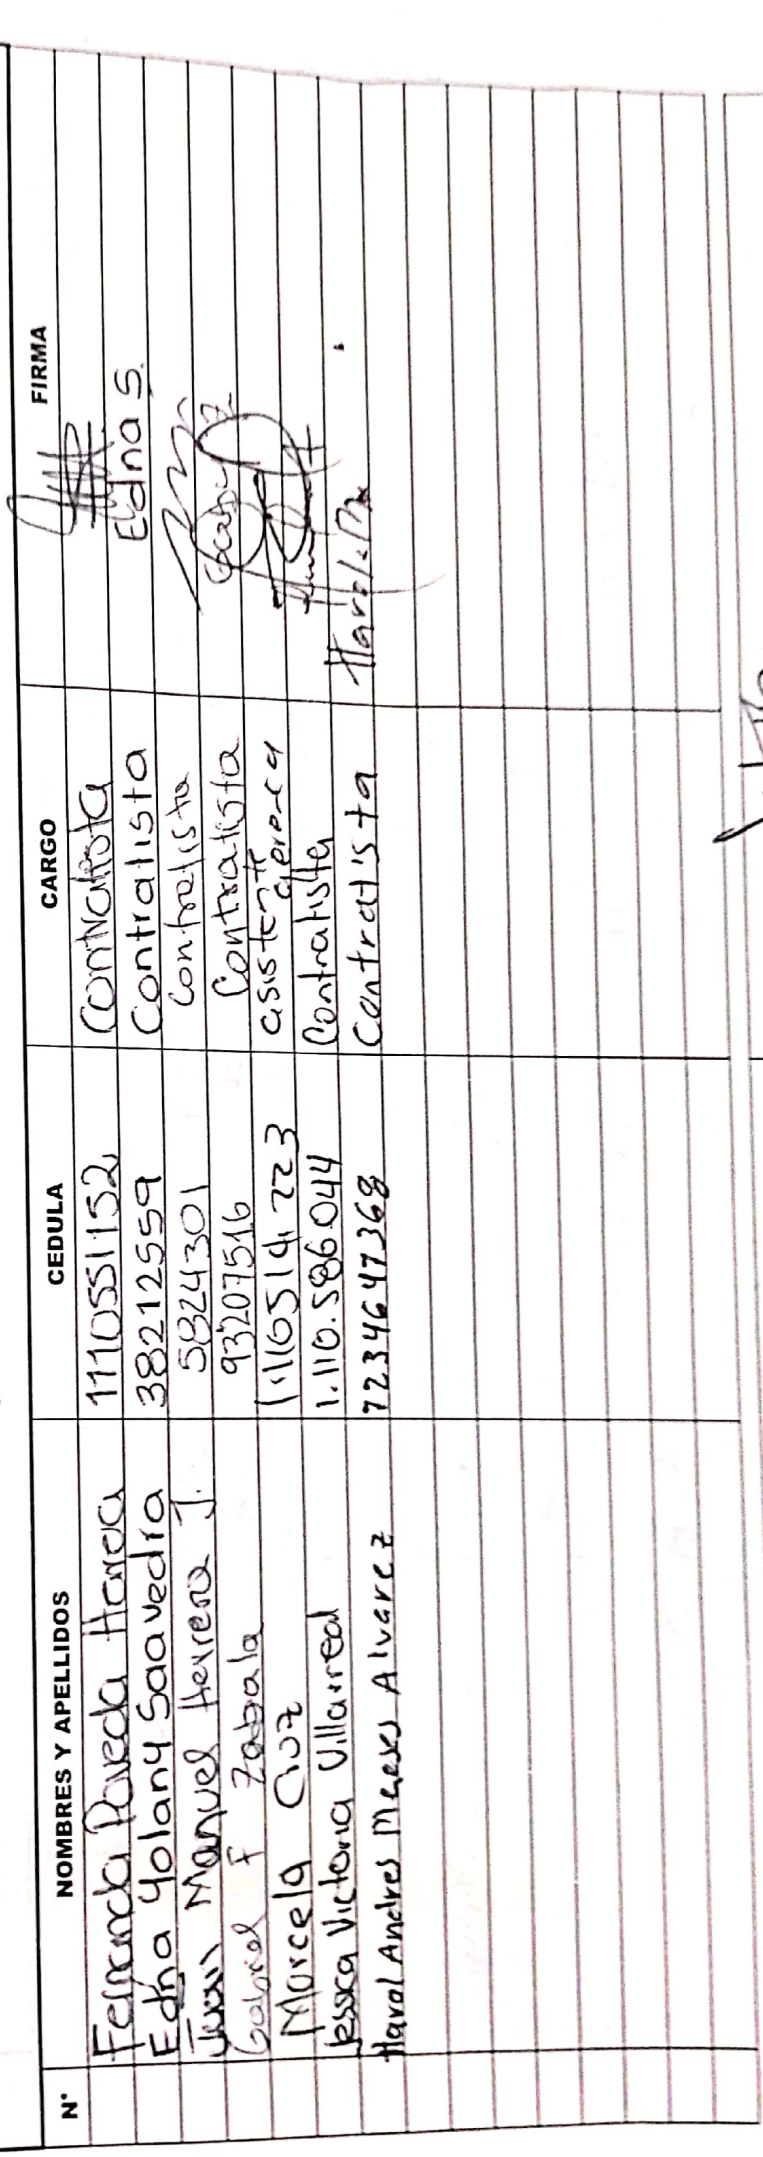 N° NOMBRES Y APELLIDOS CEDULA CARGO FIRMA
Fernanda Poveda 1110551152 Contratista
Edna Yolany Saavedra 38212559 Contratista Edna S.
Juan Manuel Herrera J. 5824301 Contratista
Gabriel F Zabala 93207516 Contratista
Marcela Cruz asistente
Jessica Victoria Villarreal 1.110.586044 Contratista
Harol Andres Alvarez Contratista